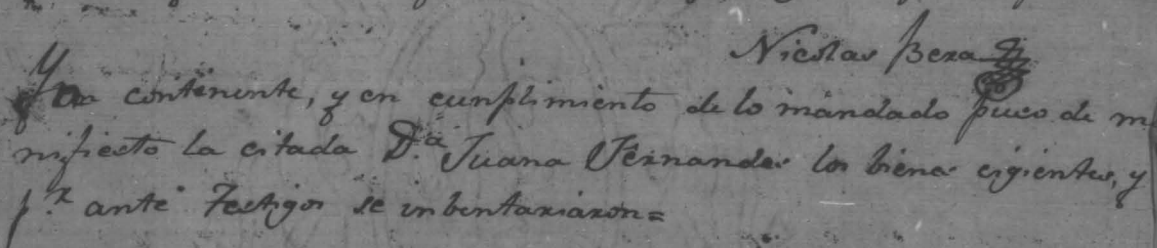 Nicolas Bera
Yn continente, y en cunplimiento de lo mandado puco de ma
nifiesto la citada D.ª Juana Fernandes los bienes cigientes, y
p.r ante Testigos se inbentariaron=